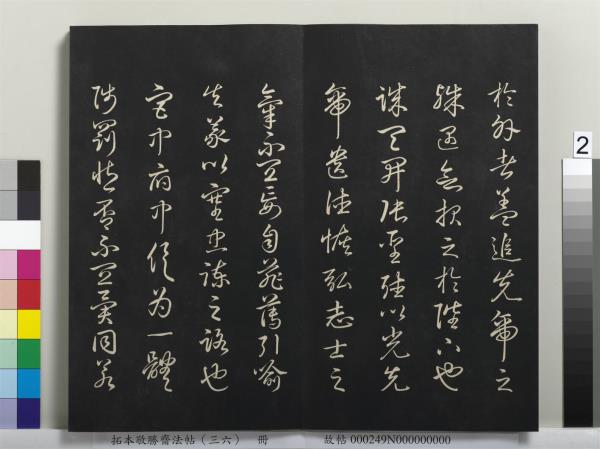 於外者蓋追先帝之
殊遇欲報之於陛下也
誠宜開張聖聽以光先
帝遺德恢弘志士之
氣不宜妄自菲薄引喻
失義以塞忠諫之路也
宮中府中俱為一體
陟罰臧否不宜異同若
2
拓本敬勝齋法帖(三六) 冊 故帖 000249N000000000